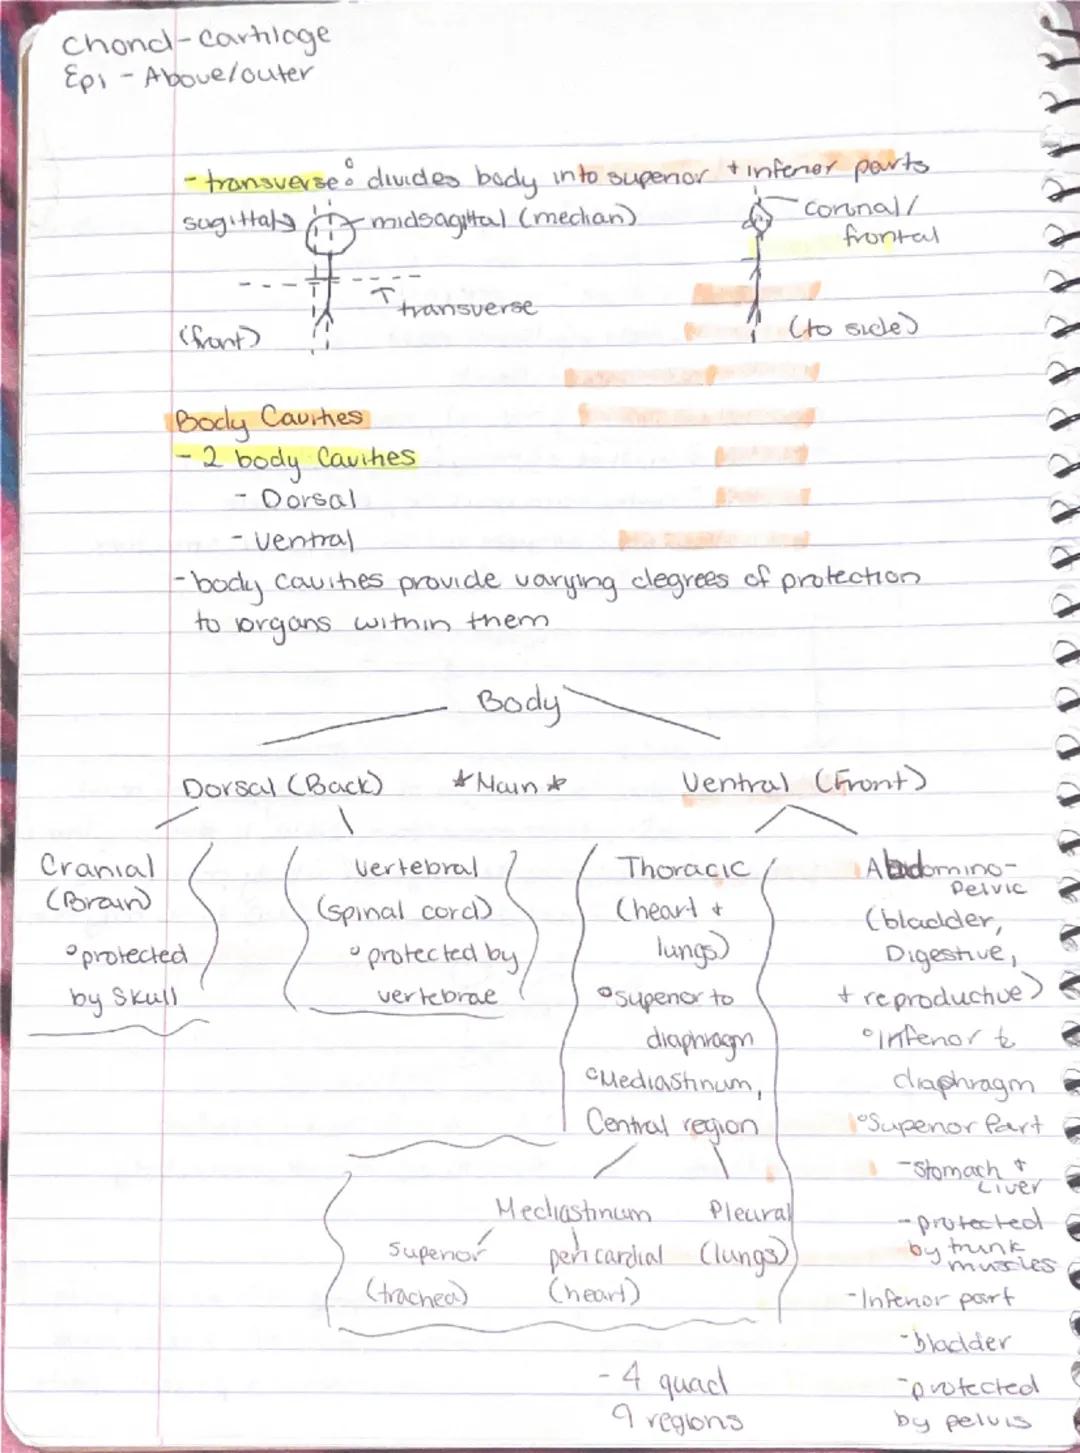 Chond-Cartilage
Epi - Above/outer
- transverse: divides body into superior + inferior parts
sagittal
midsagittal (median)
coronal/
frontal
transverse
(front)
(to side)
Body Cavities
- 2 body Cavities
- Dorsal
- Ventral
- body cavities provide varying degrees of protection
to organs within them
Body
Dorsal (Back) *Main* Ventral (Front)
Cranial
(Brain)
°protected
by Skull
Vertebral
(spinal cord)
°protected by
vertebrae
Thoracic
(heart +
lungs)
°superior to
diaphragm
°Mediastinum,
Central region
Mediastinum Pleural
Superior pericardial (lungs)
(trachea) (heart)
- 4 quad
9 regions
Abdomino-
Pelvic
(bladder,
Digestive,
+ reproductive)
°Inferior to
diaphragm
°Superior Part
- Stomach +
Liver
- protected
by trunk
muscles
- Inferior part
- bladder
- protected
by pelvis